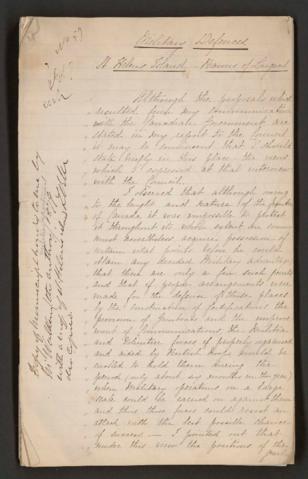 Military Defences
St Helens Island
Although the proposals which
resulted from my communication
with the Canadian Government are
stated in my report to the Council
it may be convenient that I should
state briefly in this place the views
which I expressed at that interview
with the Council.
I observed that although owing
to the length and nature of the frontier
of Canada it was impossible to protect
it throughout its whole extent an enemy
must nevertheless acquire possession of
certain vital points before he could
obtain any decided Military advantage
that there are only a few such points
and that if proper arrangements were
made for the defence of those places
by the construction of fortifications the
provision of Gunboats and the improve
ment of Communications, the Militia
and Volunteer forces if properly organised
and aided by British troops would be
enabled to hold them during the
period (only about six months in the year)
when Military operations on a large
scale could be carried on against them
and thus those forces could resist an
attack with the best possible chance
of success — I pointed out that
under this view the positions of the